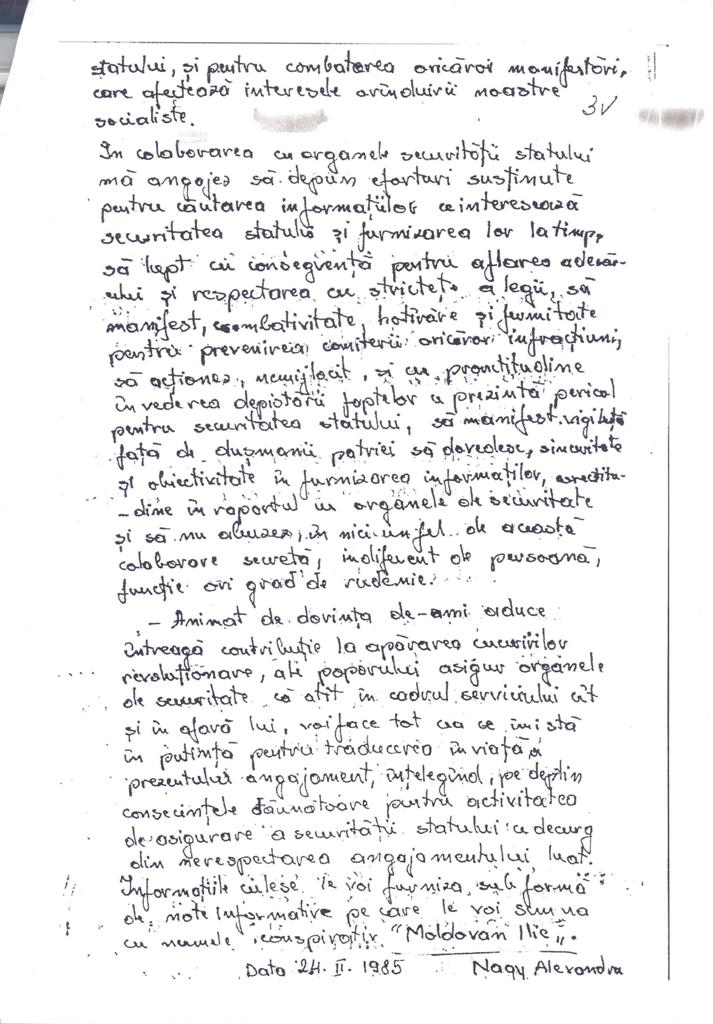 statului, și pentru combaterea oricăror manifestări,
care afectează interesele orînduirii noastre
socialiste.
3V
In colaborarea cu organele securității statului
mă angajez să depun eforturi susținute
pentru căutarea informațiilor ce interesează
securitatea statului și furnizarea lor la timp,
să lupt cu consegvență pentru aflarea adevăr-
ului și respectarea cu strictețe a legii, să
manifest, combativitate, hotărare și fermitate
pentru prevenirea comiterii oricăror infracțiuni,
să acționez, nemijlocit, și cu promtitudine
în vederea depistării faptelor ce prezintă pericol
pentru securitatea statului, să manifest vigilență
față de dușmanii patriei să dovedesc, sinceritate
și obiectivitate în furnizarea informaților, corectitu-
-dine în raportul cu organele de securitate
și să nu abuzez, in nici un fel de această
colaborare secretă, indiferent de persoană,
funcție ori grad de rudenie.
- Animat de dorința de-ami aduce
întreagă contribuție la apărarea cuceririlor
revoluționare, ale poporului asigur organele
de securitate că atît în cadrul serviciului cît
și în afară lui, voi face tot ceea ce îmi stă
în putință pentru traducerea în viață a
prezentului angajament, ințelegînd, pe deplin
consecințele dăunătoare pentru activitatea
de asigurare a securității statului ce decurg
din nerespectarea angajamentului luat.
Informațiile culese le voi furniza sub formă
de note informative pe care le voi semna
cu numele conspirativ "Moldovan Ilie".
Data 24. II. 1985 Nagy Alexandru